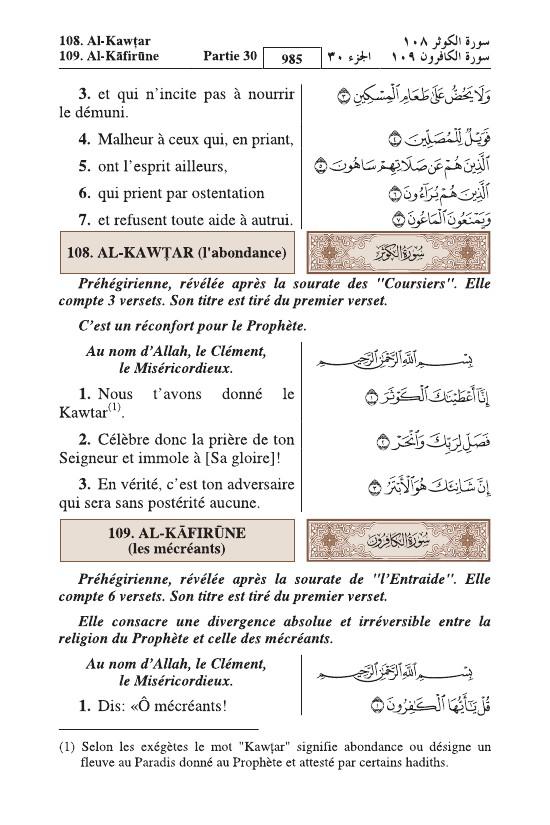 108. Al-Kawṭar
سورة الكوثر ١٠٨
109. Al-Kāfirūne Partie 30 985 الجزء ٣٠ سورة الكافرون ١٠٩
3. et qui n’incite pas à nourrir
le démuni.
وَلَا يَحُضُّ عَلَىٰ طَعَامِ ٱلْمِسْكِينِ ٣
4. Malheur à ceux qui, en priant,
فَوَيْلٌ لِّلْمُصَلِّينَ ٤
5. ont l’esprit ailleurs,
ٱلَّذِينَ هُمْ عَن صَلَاتِهِمْ سَاهُونَ ٥
6. qui prient par ostentation
ٱلَّذِينَ هُمْ يُرَآءُونَ ٦
7. et refusent toute aide à autrui.
وَيَمْنَعُونَ ٱلْمَاعُونَ ٧
108. AL-KAWṬAR (l'abondance)
سُورَةُ الكَوْثَرِ
Préhégirienne, révélée après la sourate des "Coursiers". Elle
compte 3 versets. Son titre est tiré du premier verset.
C’est un réconfort pour le Prophète.
Au nom d’Allah, le Clément,
le Miséricordieux.
بِسْمِ ٱللَّهِ ٱلرَّحْمَٰنِ ٱلرَّحِيمِ
1. Nous t’avons donné le
Kawtar(1).
إِنَّآ أَعْطَيْنَٰكَ ٱلْكَوْثَرَ ١
2. Célèbre donc la prière de ton
Seigneur et immole à [Sa gloire]!
فَصَلِّ لِرَبِّكَ وَٱنْحَرْ ٢
3. En vérité, c’est ton adversaire
qui sera sans postérité aucune.
إِنَّ شَانِئَكَ هُوَ ٱلْأَبْتَرُ ٣
109. AL-KĀFIRŪNE
(les mécréants)
سُورَةُ الكَافِرُونَ
Préhégirienne, révélée après la sourate de "l’Entraide". Elle
compte 6 versets. Son titre est tiré du premier verset.
Elle consacre une divergence absolue et irréversible entre la
religion du Prophète et celle des mécréants.
Au nom d’Allah, le Clément,
le Miséricordieux.
بِسْمِ ٱللَّهِ ٱلرَّحْمَٰنِ ٱلرَّحِيمِ
1. Dis: «Ô mécréants!
قُلْ يَٰٓأَيُّهَا ٱلْكَٰفِرُونَ ١
(1) Selon les exégètes le mot "Kawṭar" signifie abondance ou désigne un
fleuve au Paradis donné au Prophète et attesté par certains hadiths.